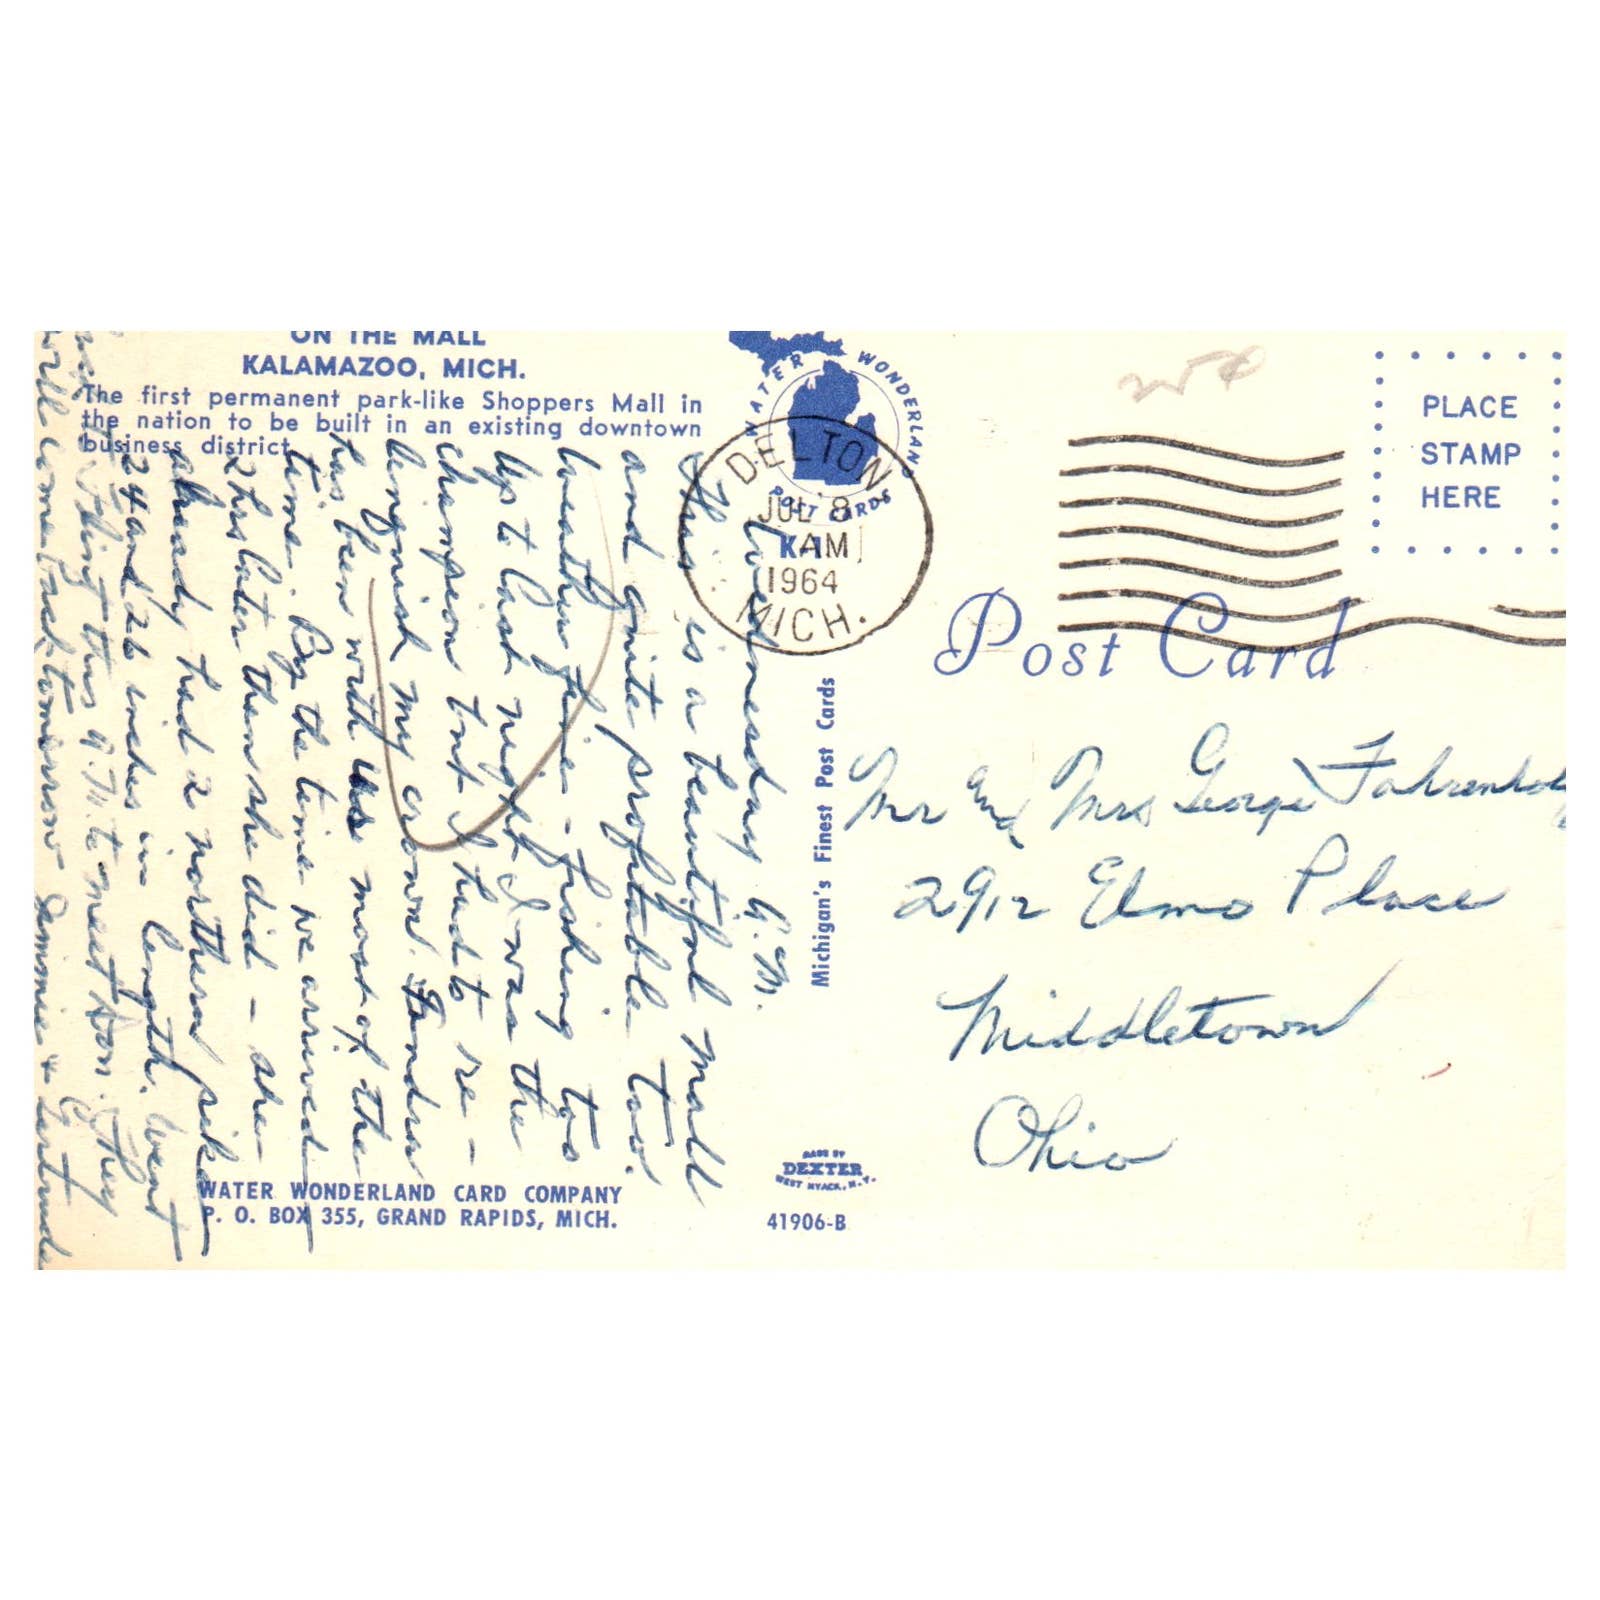 ON THE MALL
KALAMAZOO, MICH.
The first permanent park-like Shoppers Mall in
the nation to be built in an existing downtown
business district.
WATER WONDERLAND
POST CARDS
K-1
DELTON
JUL 8
AM
1964
MICH.
PLACE
STAMP
HERE
Post Card
Wednesday A.M.
This is a beautiful mall
and quite profitable too.
Weather fine - fishing too
Up to last night I was the
champion but I had to re-
linquish my crown. Sandra
has been with us most of the
time. By the time we arrived
2 hrs later then she did - she
already had 2 northern pike
24 and 26 inches in length. Went
fishing this A.M. to meet Don. They
will come back tomorrow Jimmie & Gertrude
Mr and Mrs George Fahrenholz
2912 Elmo Place
Middletown
Ohio
Michigan's Finest Post Cards
MADE BY
DEXTER
WEST NYACK, N.Y.
WATER WONDERLAND CARD COMPANY
P. O. BOX 355, GRAND RAPIDS, MICH.
41906-B